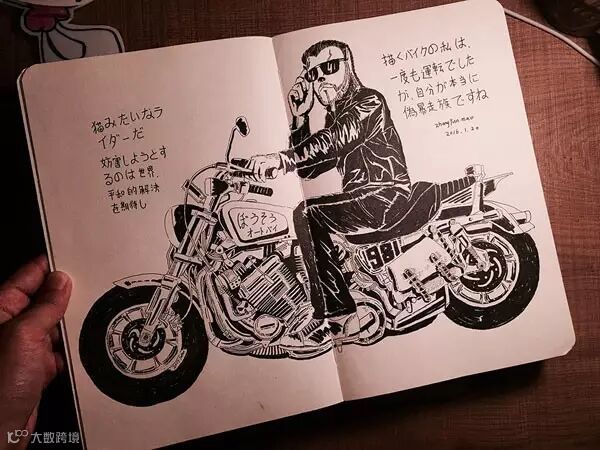 猫みたいなラ
イダーだ
妨害しようとす
るのは世界、
平和的解決
を期待し
描くバイクの私は、
一度も運転でした
が、自分が本当に
偽暴走族ですね
2016.1.20
ぼうそう
オートバイ
1981
大数跨境